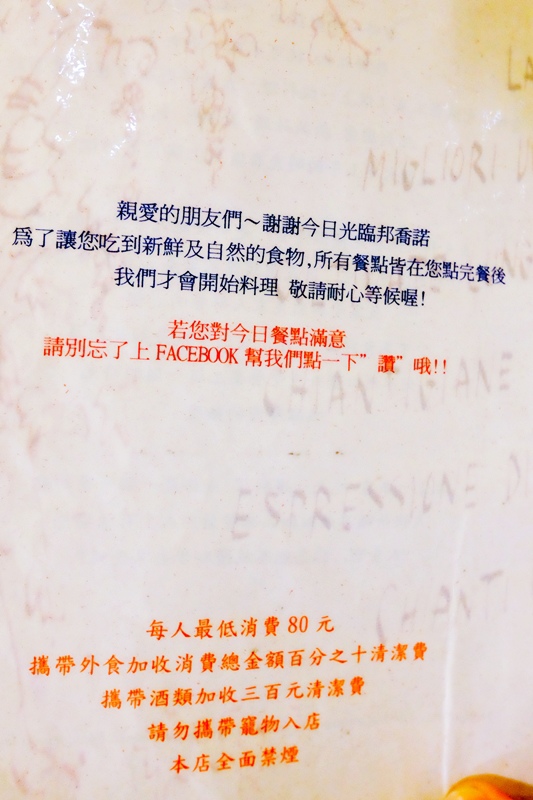 LA
MIGLIORI
親愛的朋友們～謝謝今日光臨邦喬諾
爲了讓您吃到新鮮及自然的食物,所有餐點皆在您點完餐後
我們才會開始料理 敬請耐心等候喔!
若您對今日餐點滿意
請別忘了上 FACEBOOK 幫我們點一下”讚”哦!!
ESPRESSIONE
每人最低消費 80 元
攜帶外食加收消費總金額百分之十清潔費
攜帶酒類加收三百元清潔費
請勿攜帶寵物入店
本店全面禁煙